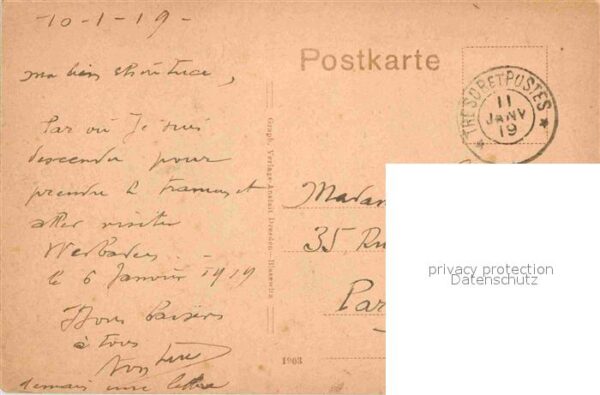 10-1-19-
ma bien chère
Par où je suis
descendu pour
prendre le tramway et
aller visiter
Wiesbaden
le 6 Janvier 1919
Bons baisers
à tous
demain une lettre
Graph. Verlags-Anstalt Dresden-Blasewitz
1903
Postkarte
TRESOR ET POSTES
11
JANV
19
Madam
35 Ru
Par
privacy protection
Datenschutz